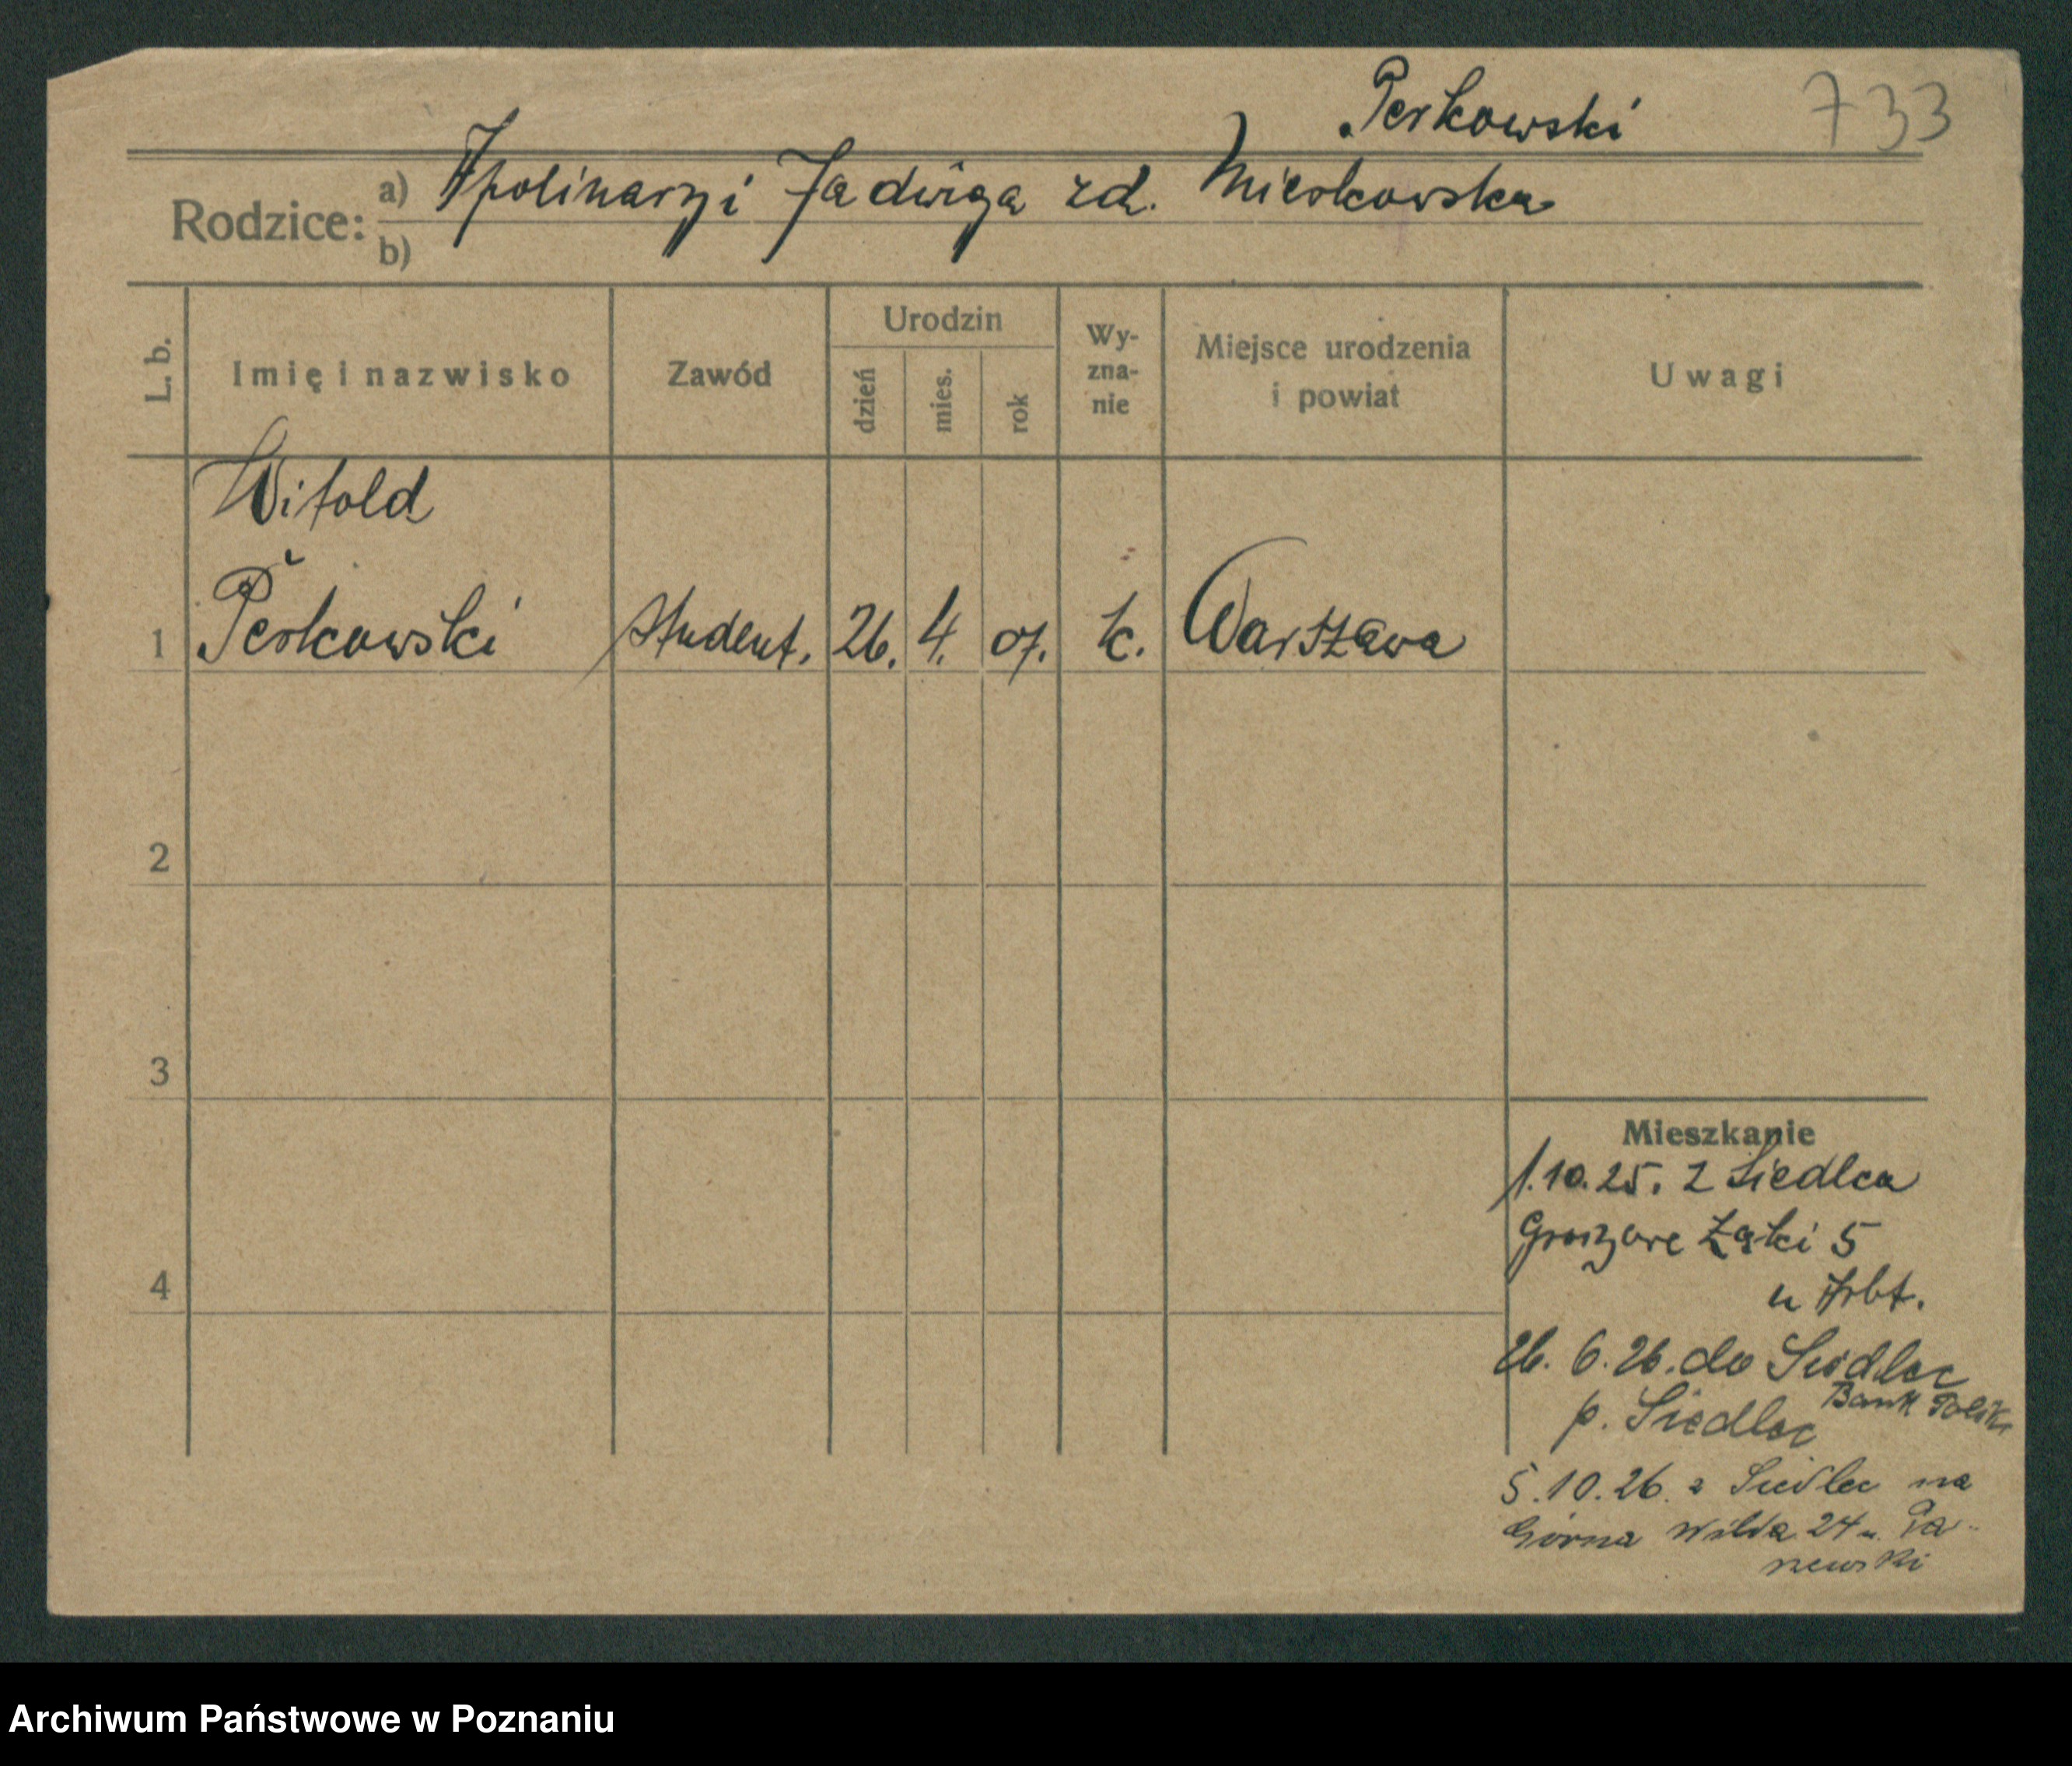 Perkowski 733
Rodzice: a) Apolinary i Jadwiga zd. Mierkowska
b)
L. b. Imię i nazwisko Zawód Urodzin dzień mies. rok Wy-zna-nie Miejsce urodzenia i powiat Uwagi
Witold
1 Perkowski Student. 26. 4. 07. k. Warszawa
2
3
Mieszkanie
1.10.25. z Siedlca
Łąki 5
4
u Arbt.
26. 6. 26. do Siedlec
Bank Polski
p. Siedlec
5.10.26. z Siedlec na
Górna Wilda 24 u. Pa-
newski
Archiwum Państwowe w Poznaniu